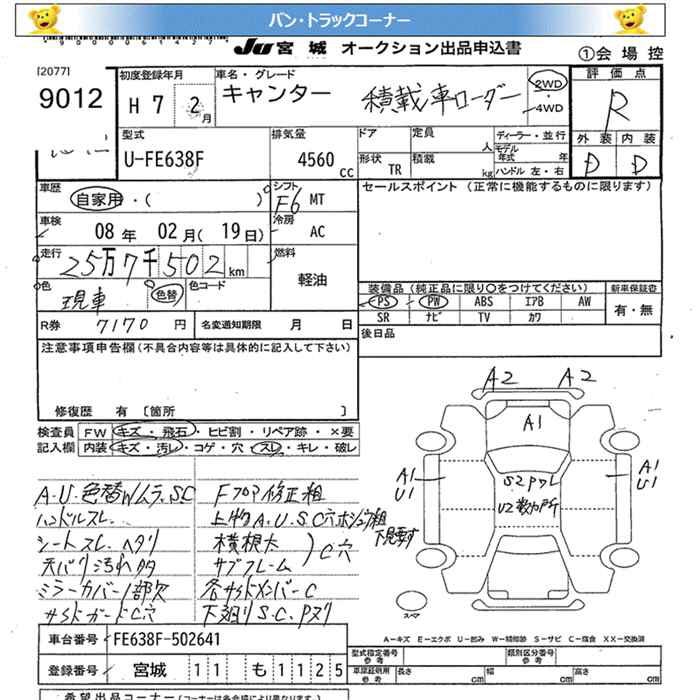 バン・トラックコーナー
Ju 宮城 オークション出品申込書
①会場控
[2077]
9012
初度登録年月
H 7 2月
車名・グレード
キャンター 積載車ローダー
2WD
・
4WD
評価点
R
外装 内装
D D
型式
U-FE638F
排気量
4560 cc
ドア
定員
人
形状
TR
積載
kg
ディーラー・並行
モデル年式 年
ハンドル 左・右
車歴
自家用・( )
シフト
F6 MT
セールスポイント (正常に機能するものに限ります)
車検
08年 02月(19日)
冷房
AC
走行
25万7千502km
燃料
軽油
色
現車
色替
色コード
装備品 (純正品に限り○をつけてください)
新車保証書
PS PW ABS エアB AW
SR ナビ TV カワ
有・無
R券 7170円
名変通知期限 月 日
後日品
注意事項申告欄(不具合内容等は具体的に記入して下さい)
修復歴 有 [箇所 ]
検査員
記入欄
FW キズ・飛石・ヒビ割・リペア跡・×要
内装 キズ・汚レ・コゲ・穴・スレ・キレ・破レ
A2 A2
A1
A1
U1
A1
U1
S2アクレ
U2数カ所
A.U.色替Wムラ.S.C
ハンドルスレ
シートスレ.ヘタリ
天バリ汚れ多
ミラーカバー1部欠
サイドガードC穴
Fフロア修正粗
上物A.U.S.C穴ホシュウ粗
下見要す
横根太
サブフレーム
C穴
各サイドメンバーC
下廻りS.C.Pヌリ
スペア
A-キズ E-エクボ U-凹み W-補修跡 S-サビ C-腐食 XX-交換済
車台番号
FE638F-502641
登録番号
宮城 11 も 1125
型式指定番号
参考
類別区分番号
参考
車庫証明用
参考
長さ cm
幅 cm
高さ cm
希望出品コーナー